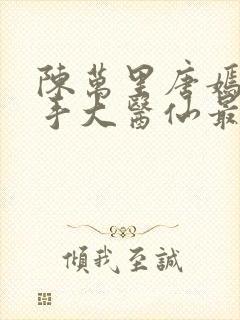 陳萬里唐嫣
手大醫仙最
傾我至誠